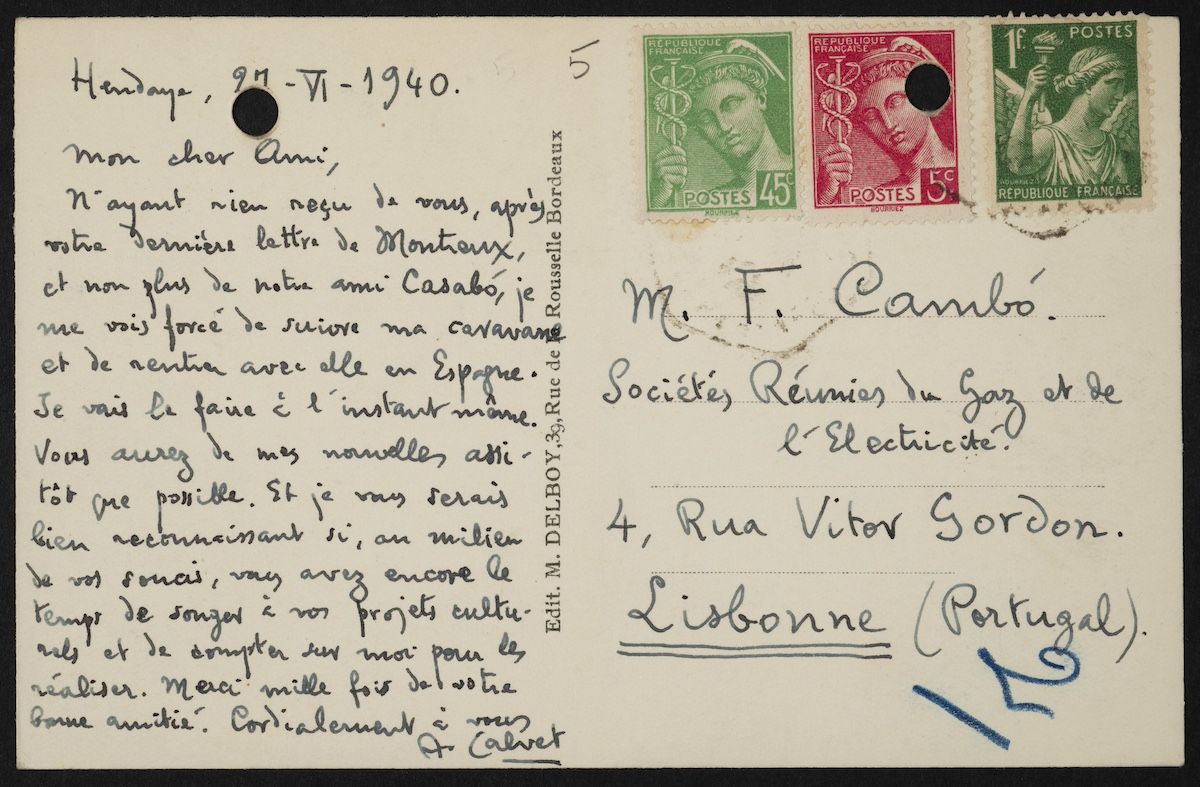 Hendaye, 27-VI-1940.
Mon cher Ami,
N'ayant rien reçu de vous, après
votre dernière lettre de Montreux,
et non plus de notre ami Casabó, je
me vois forcé de suivre ma caravane
et de rentrer avec elle en Espagne.
Je vais le faire à l'instant même.
Vous aurez de mes nouvelles assi-
tôt que possible. Et je vous serais
bien reconnaissant si, au milieu
de vos soucis, vous avez encore le
temps de songer à vos projets cultu-
rels et de compter sur moi pour les
réaliser. Merci mille fois de votre
bonne amitié. Cordialement à vous
A. Calvet
Edit. M. DELBOY, 39, Rue de la Rousselle Bordeaux
5
RÉPUBLIQUE
FRANÇAISE
POSTES 45c
HOURRIEZ
RÉPUBLIQUE
FRANÇAISE
POSTES 5c
HOURRIEZ
1f. POSTES
HOURRIEZ
RÉPUBLIQUE FRANÇAISE
M. F. Cambó.
Sociétés Réunies du Gaz et de
l'Electricité.
4, Rua Vitor Gordon.
Lisbonne (Portugal).